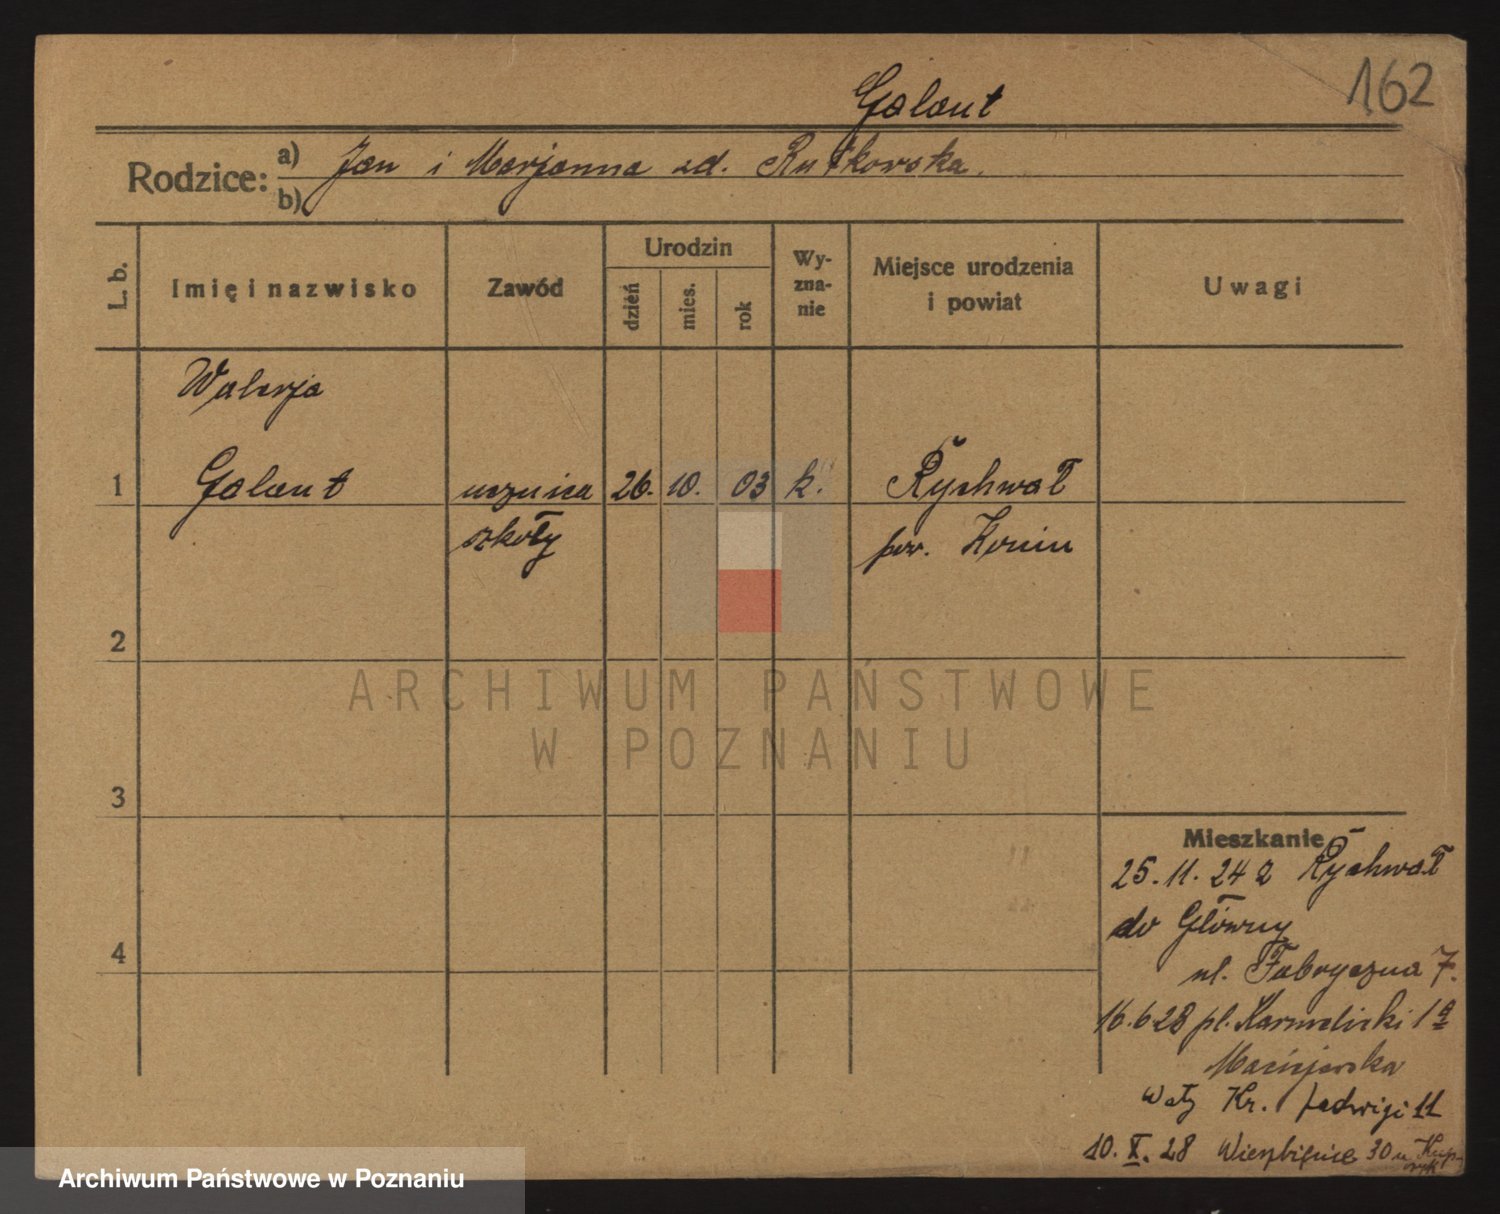 162
Galant
Rodzice:
a) Jan i Marjanna zd. Rutkowska.
b)
L. b.
Imię i nazwisko
Zawód
Urodzin
dzień
mies.
rok
Wy-
zna-
nie
Miejsce urodzenia
i powiat
Uwagi
Walerja
1 Galant ucznica 26. 10. 03 k. Rychwał
szkoły pow. Konin
2
ARCHIWUM PAŃSTWOWE
W POZNANIU
3
Mieszkanie
25.11.24 z Rychwał
do Główny
ul. Fabryczna 7.
4
16.6 28 pl. Karmelicki 1a
Maciejewska
Wały Kr. Jadwigi 11
10. X. 28 Wierzbięcice 30 u
Archiwum Państwowe w Poznaniu